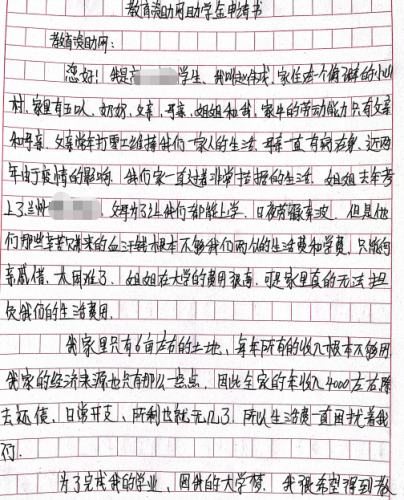 教育资助网助学金申请书
教育资助网：
您好！我是高 学生、我叫赵伟成，家住在一个偏僻的小山
村，家里有五口人、奶奶、父亲、母亲、姐姐和我，家中的劳动能力只有父亲
和母亲，父亲常年打零工维持我们一家人的生活，母亲一直有病在身，近两
年由于疫情的影响，我们家一直过着非常拮据的生活，姐姐去年考
上了兰州 ，父母为了让我们都能上学，日夜劳碌奔波，但是他
们那些辛苦换来的血汗钱根本不够我们两个的生活费和学费，只能向
亲戚借，太困难了，姐姐在大学的费用很高，可是家里真的无法担
负我们的生活费用．
我家里只有6亩左右的土地，每年所有的收入根本不够用
我家的经济来源也只有那么一点点，因此全家的年收入4000左右除
去还债、日常开支、所剩也就无几了，所以生活费一直困扰着我
们．
为了完成我的学业、圆我的大学梦，我很希望得到教